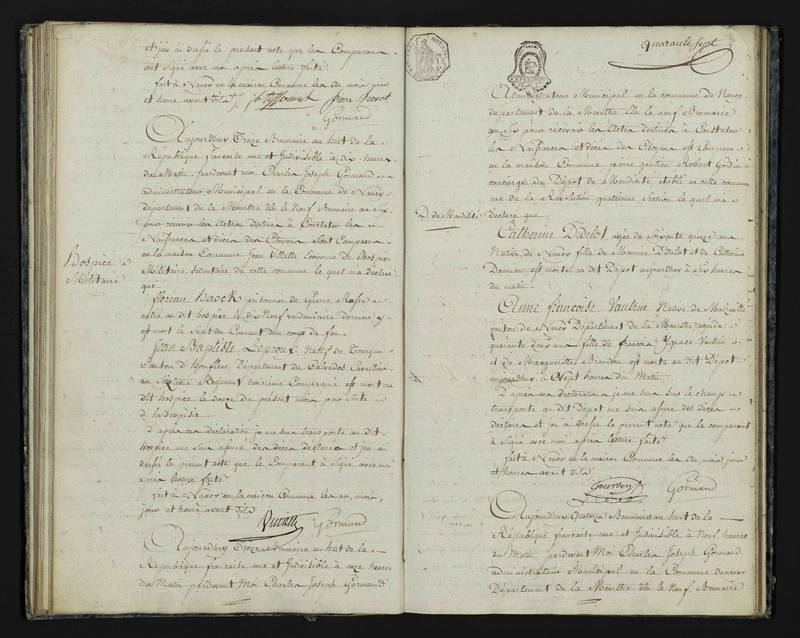 et jeu ai dressé le present acte que les Comparans
ont signé avec moi après lecture faite
fait à Nancy en la maison Commune les an mois jour
et heure avant dits
Gormand
Aujourdhuy Treize Brumaire an huit de la
République francaise une et Indivisible à dix heures
du Matin pardevant moi Charles Joseph Gormand
administrateur Municipal en la Commune de Nancy
département de la Meurthe élu le Neuf Brumaire an Six
pour recevoir les Actes destinés à Constater les
Naissances et décès des Citoyens sont Comparus
en la maison Commune Jean Villatte Econome de l'hospice
Militaire Sedentaire de cette commune le quel m'a déclaré
que
Hospice
Militaire
florean haock prisonnier de Guerre Russe
entré au dit hospice le dix Neuf vendemiaire dernier y
est mort le Sept du Courant d'un coup de feu
Jean Baptiste Leproux Natif de
Canton d'honfleur Département du Calvados Cavalier
au Regiment troisieme Compagnie est mort au
dit hospice le douze du présent mois par suite
d'hydropisie
d'après ces déclarations je me suis transporté au dit
hospice me suis assuré des décès déclarés et jeu ai
dressé le present acte que le Comparant à signé avec moi
après lecture faite
fait à Nancy en la maison Commune les an, mois,
jour et heure avant dits
Gormand
Aujourdhuy Treize Brumaire an huit de la
République francaise une et Indivisible à onze heures
du Matin pardevant Moi Charles Joseph Gormand
quarante Sept
administrateur Municipal en la commune de Nancy
département de la Meurthe élu le neuf Brumaire
an Six pour recevoir les Actes destinés à Constater
les Naissances et décès des Citoyens est Comparu
en la maison Commune Robert Gourdin
concierge du Dépot de Mendicité établi en cette commune
rue de la Révolution quatrieme Section le quel m'a
déclaré que
D. de Mendicité
Catherine Didelot, agée de Soixante quinze ans
Native de Nancy fille de Didelot et de Catherine
est morte au dit Dépot aujourdhuy à Six heures
du matin
Anne francoise Vautrin Native de Malzeville
canton de Nancy Département de la Meurthe agée de
quarante deux ans fille de francois Ignace Vautrin
et de Margueritte Brandon est morte au dit Dépot
aujourdhuy à Sept heures du Matin
d'après ces déclarations je me suis sur le champ
transporté au dit Dépot me suis assuré des décès
déclarés et jeu ai dressé le présent acte que le comparant
à Signé avec moi après lecture faite
fait à Nancy en la maison Commune les an, mois, jour
et heure avant dits
Gourdin Gormand
Aujourdhuy Quatorze Brumaire an huit de la
République francaise une et Indivisible à Neuf heures
du Matin pardevant Moi Charles Joseph Gormand
administrateur Municipal en la Commune de Nancy
Département de la Meurthe élu le Neuf Brumaire